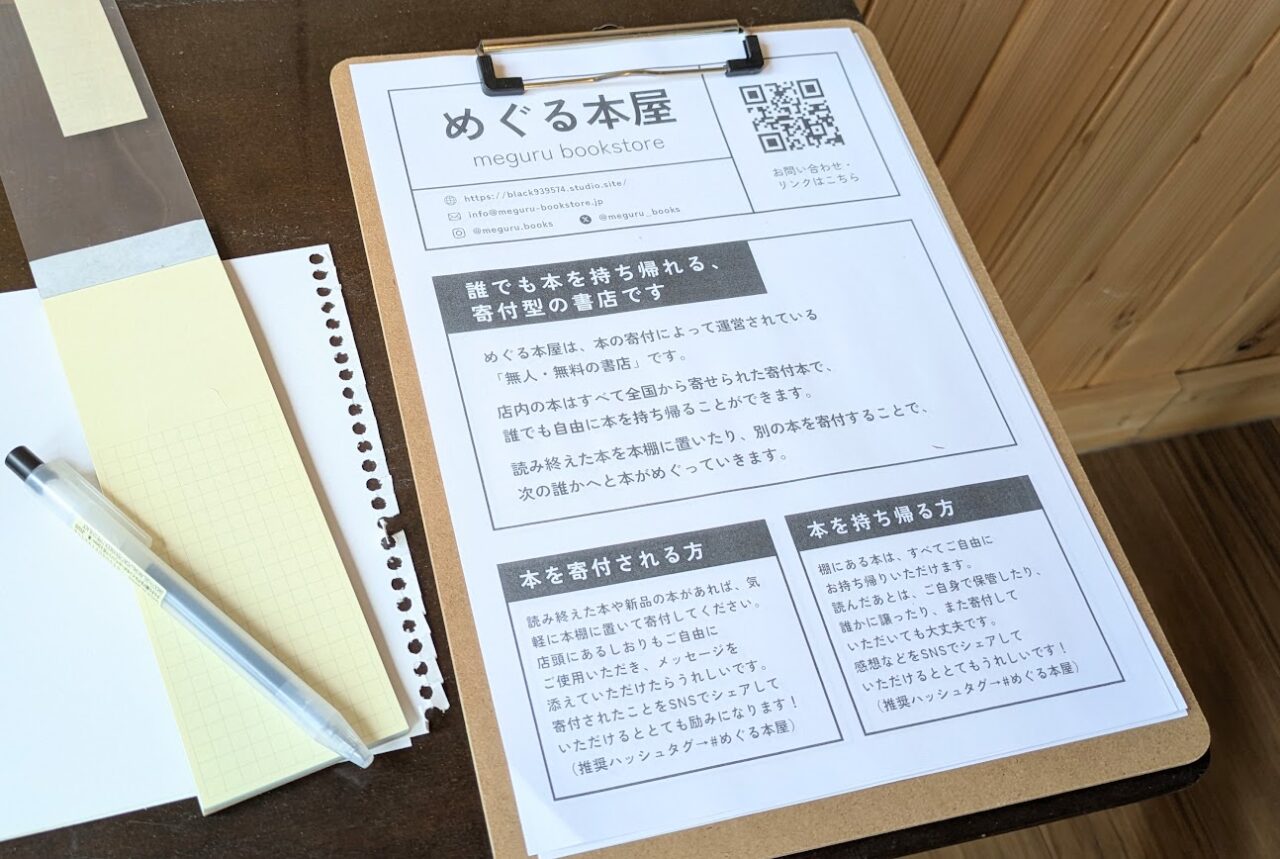 めぐる本屋
meguru bookstore
https://black939574.studio.site/
info@meguru-bookstore.jp
@meguru.books
@meguru_books
お問い合わせ・
リンクはこちら
誰でも本を持ち帰れる、
寄付型の書店です
めぐる本屋は、本の寄付によって運営されている
「無人・無料の書店」です。
店内の本はすべて全国から寄せられた寄付本で、
誰でも自由に本を持ち帰ることができます。
読み終えた本を本棚に置いたり、別の本を寄付することで、
次の誰かへと本がめぐっていきます。
本を寄付される方
読み終えた本や新品の本があれば、気
軽に本棚に置いて寄付してください。
店頭にあるしおりもご自由に
ご使用いただき、メッセージを
添えていただけたらうれしいです。
寄付されたことをSNSでシェアして
いただけるととても励みになります！
（推奨ハッシュタグ→#めぐる本屋）
本を持ち帰る方
棚にある本は、すべてご自由に
お持ち帰りいただけます。
読んだあとは、ご自身で保管したり、
誰かに譲ったり、また寄付して
いただいても大丈夫です。
感想などをSNSでシェアして
いただけるととてもうれしいです！
（推奨ハッシュタグ→#めぐる本屋）